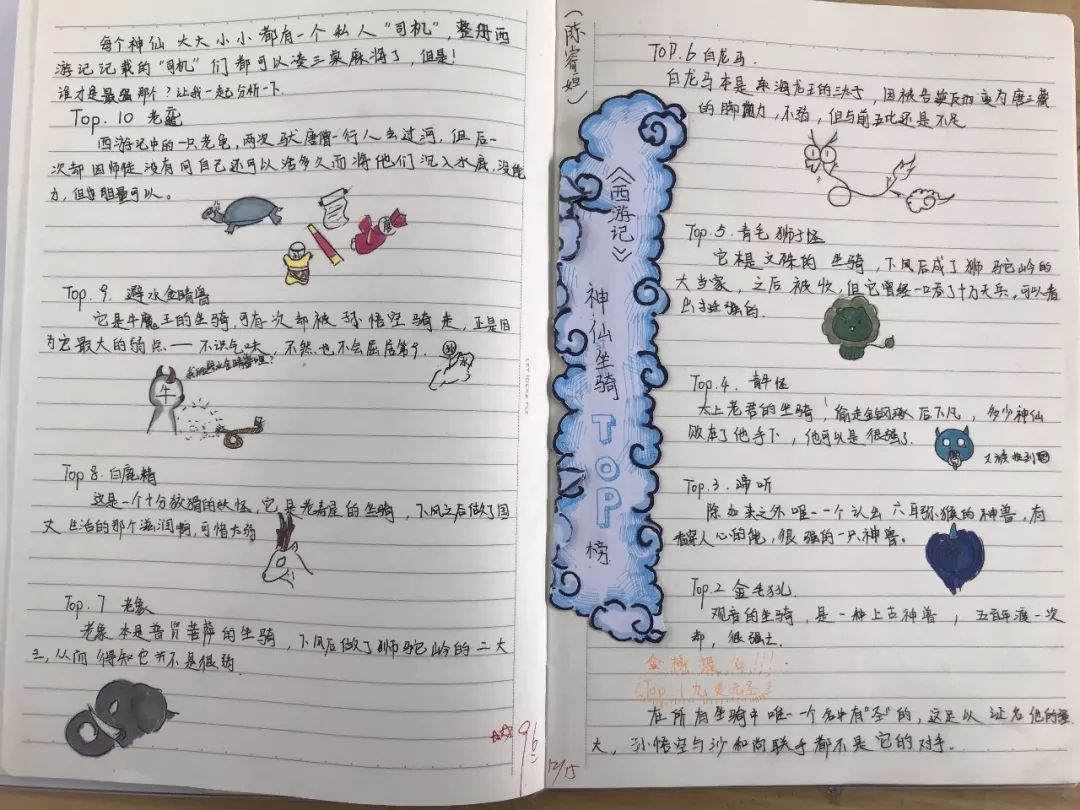 每个神仙大大小小都有一个私人“司机”,整册西
游记记载的“司机”们都可以凑三桌麻将了,但是!
谁才是最强那个?让我一起分析一下.
Top.10 老鼋
西游记中的一只老龟,两次驮唐僧一行人去过河,但后一
次却因师徒没有问自己还可以活多久而将他们沉入水底,没能
力,但胆量可以。
Top.9.避水金睛兽
它是牛魔王的坐骑,可有次却被孙悟空骑走,正是因
为它最大的弱点——不识气味,不然也不会屈居第9.
我的避水金睛兽呢?
牛
Top 8.白鹿精
这是一个十分狡猾的妖怪,它是老寿星的坐骑,下凡之后做了国
丈生活的那个滋润啊,可惜太弱
Top.7 老象
老象本是普贤菩萨的坐骑,下凡后做了狮驼岭的二大
王,从而得知它并不是很弱
96
12/15
(陈睿妲)
《西游记》
神仙坐骑TOP榜
TOP.6 白龙马.
白龙马本是东海龙王的三太子,因被告变为唐三藏
的脚力,不弱,但与前五比还是不足
Top.5.青毛狮子怪
它本是文殊的坐骑,下凡后成了狮驼岭的
大当家,之后被收,但它曾经一口吞了十万天兵,可以看
出挺强的.
Top.4.青牛怪
太上老君的坐骑,偷走金钢琢后下凡,多少神仙
败在了他手下,他可以是很强了.
Top.3.谛听
除如来之外唯一一个认出六耳猕猴的神兽,有
人心的能,很强的一只神兽。
Top.2 金毛犼
观音的坐骑,是一种上古神兽,五百年渡一次
劫,很强大.
!!!
Top.1 九灵元圣
在所有坐骑中唯一一个名中有“圣”的,这足以证名他的强
大,孙悟空与沙和尚联手都不是它的对手.